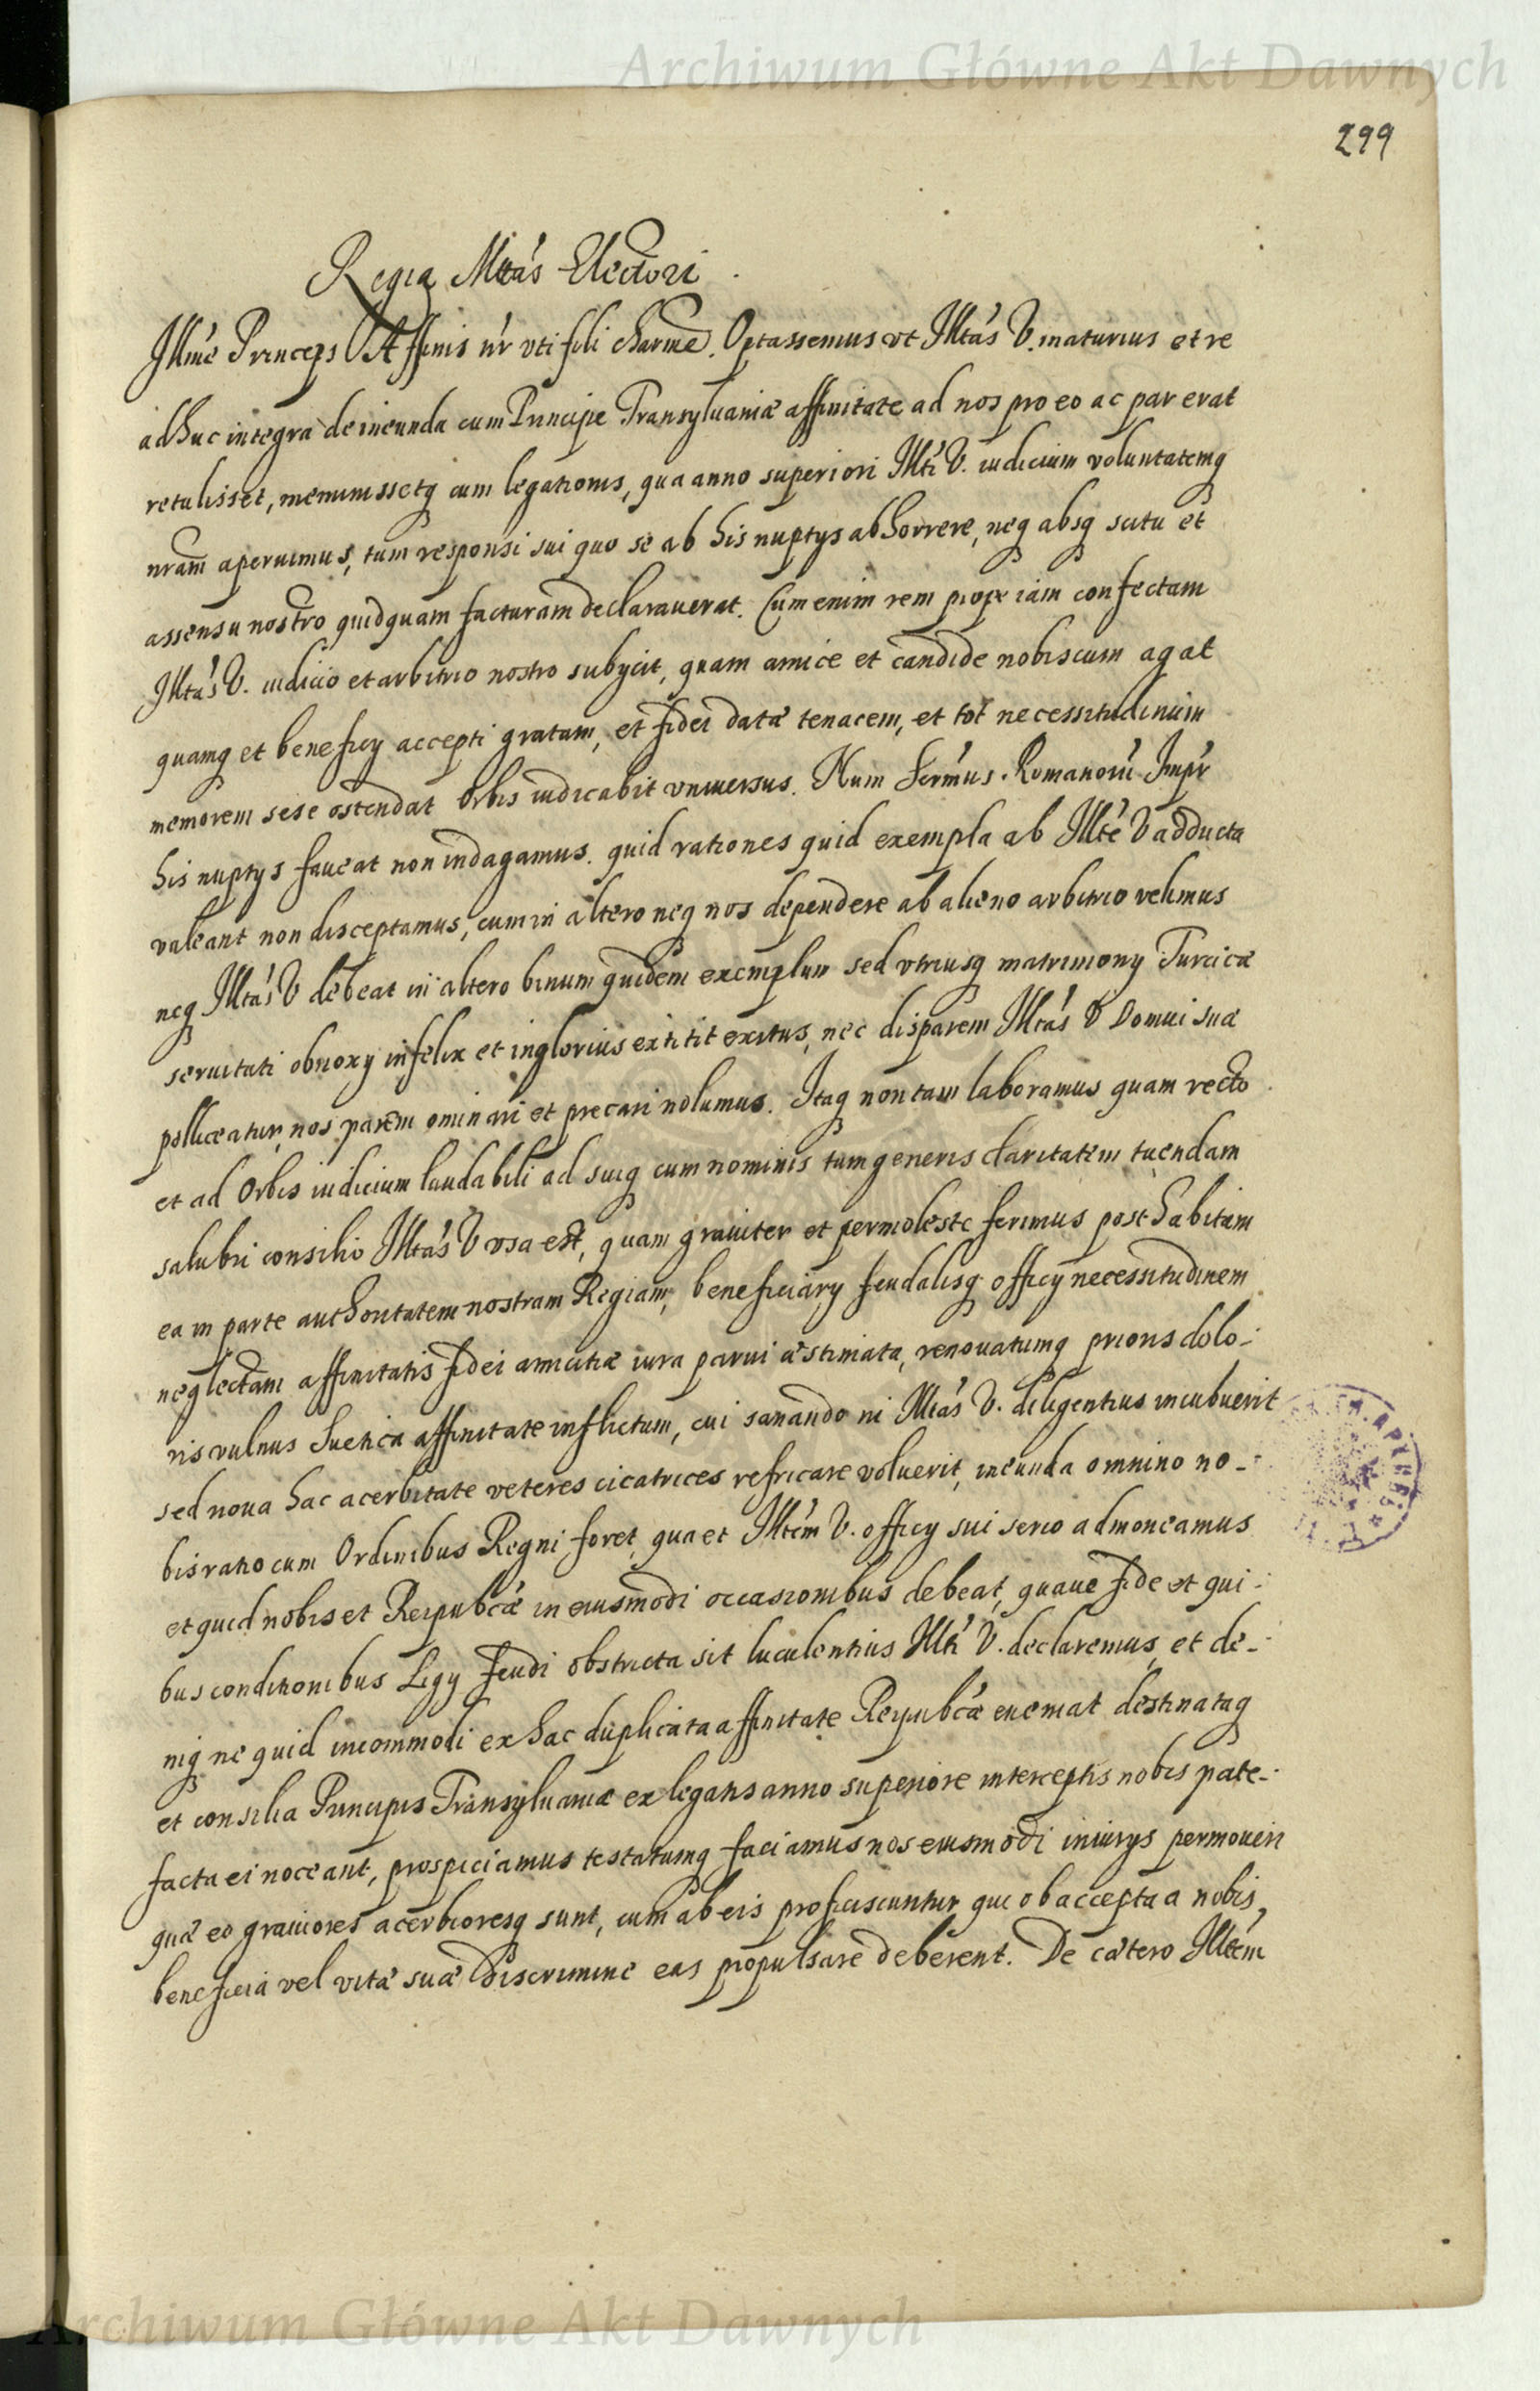 Archiwum Główne Akt Dawnych
299
Regia Mtas Electori.
Illme Princeps Affinis nr vti fili charme. Optassemus vt Illtas V. maturius et re
adhuc integra de ineunda cum Principe Transyluaniæ affinitate ad nos pro eo ac par erat
retulisset, meminissetq cum legationis, qua anno superiori Illti V. iudicium voluntatemq
nram aperuimus, tum responsi sui quo se ab his nuptys abhorrere, neq absq scitu et
assensu nostro quidquam facturam declarauerat. Cum enim rem prope iam confectam
Illtas V. iudicio et arbitrio nostro subycit, quam amice et candide nobiscum agat
quamq et beneficy accepti gratam, et fidei datæ tenacem, et tot necessitudinum
memorem sese ostendat Orbis iudicabit vniuersus. Num Sermus Romanorū Impr
his nuptys faueat non indagamus. quid rationes quid exempla ab Illte V adducta
valeant non disceptamus, cum in altero neq nos dependere ab alieno arbitrio velimus
neq Illtas V debeat in altero binum quidem exemplum sed vtriusq matrimony Turcicæ
seruitati obnoxy infelix et inglorius extitit exitus, nec disparem Illtas V Domui suæ
polliceatur, nos parem ominari et precari nolumus. Itaq non tam laboramus quam recto
et ad Orbis iudicium laudabili ad suiq cum nominis tum generis claritatem tuendam
salubri consilio Illtas V vsa est, quam grauiter et permoleste ferimus posthabitam
ea in parte authoritatem nostram Regiam, beneficiary feudalisq officy necessitudinem
neglectam affinitatis fidei amicitiæ iura parui æstimata, renouatumq prioris dolo-
ris vulnus Suetica affinitate inflictum, cui sanando ni Illtas V. diligentius incubuerit
sed noua hac acerbitate veteres cicatrices refricare voluerit, ineunda omnino no-
bis ratio cum Ordinibus Regni foret, qua et Illtem V. officy sui serio admoneamus
et quid nobis et Reipubcæ in eiusmodi occasionibus debeat, quaue fide et qui-
bus conditionibus Ligy feudi obstricta sit luculentius Illti V. declaremus, et de-
niq ne quid incommodi ex hac duplicata affinitate Reipubcæ eueniat destinataq
et consilia Principis Transyluaniæ ex legatis anno superiore interceptis nobis pate-
facta ei noceant, prospiciamus testatumq faciamus nos eiusmodi iniurys permoueri
quæ eo grauiores acerbioresq sunt, cum ab eis proficiscuntur qui ob accepta a nobis
beneficia vel vitæ suæ discrimine eas propulsare deberent. De cætero Illtem
Archiwum Główne Akt Dawnych